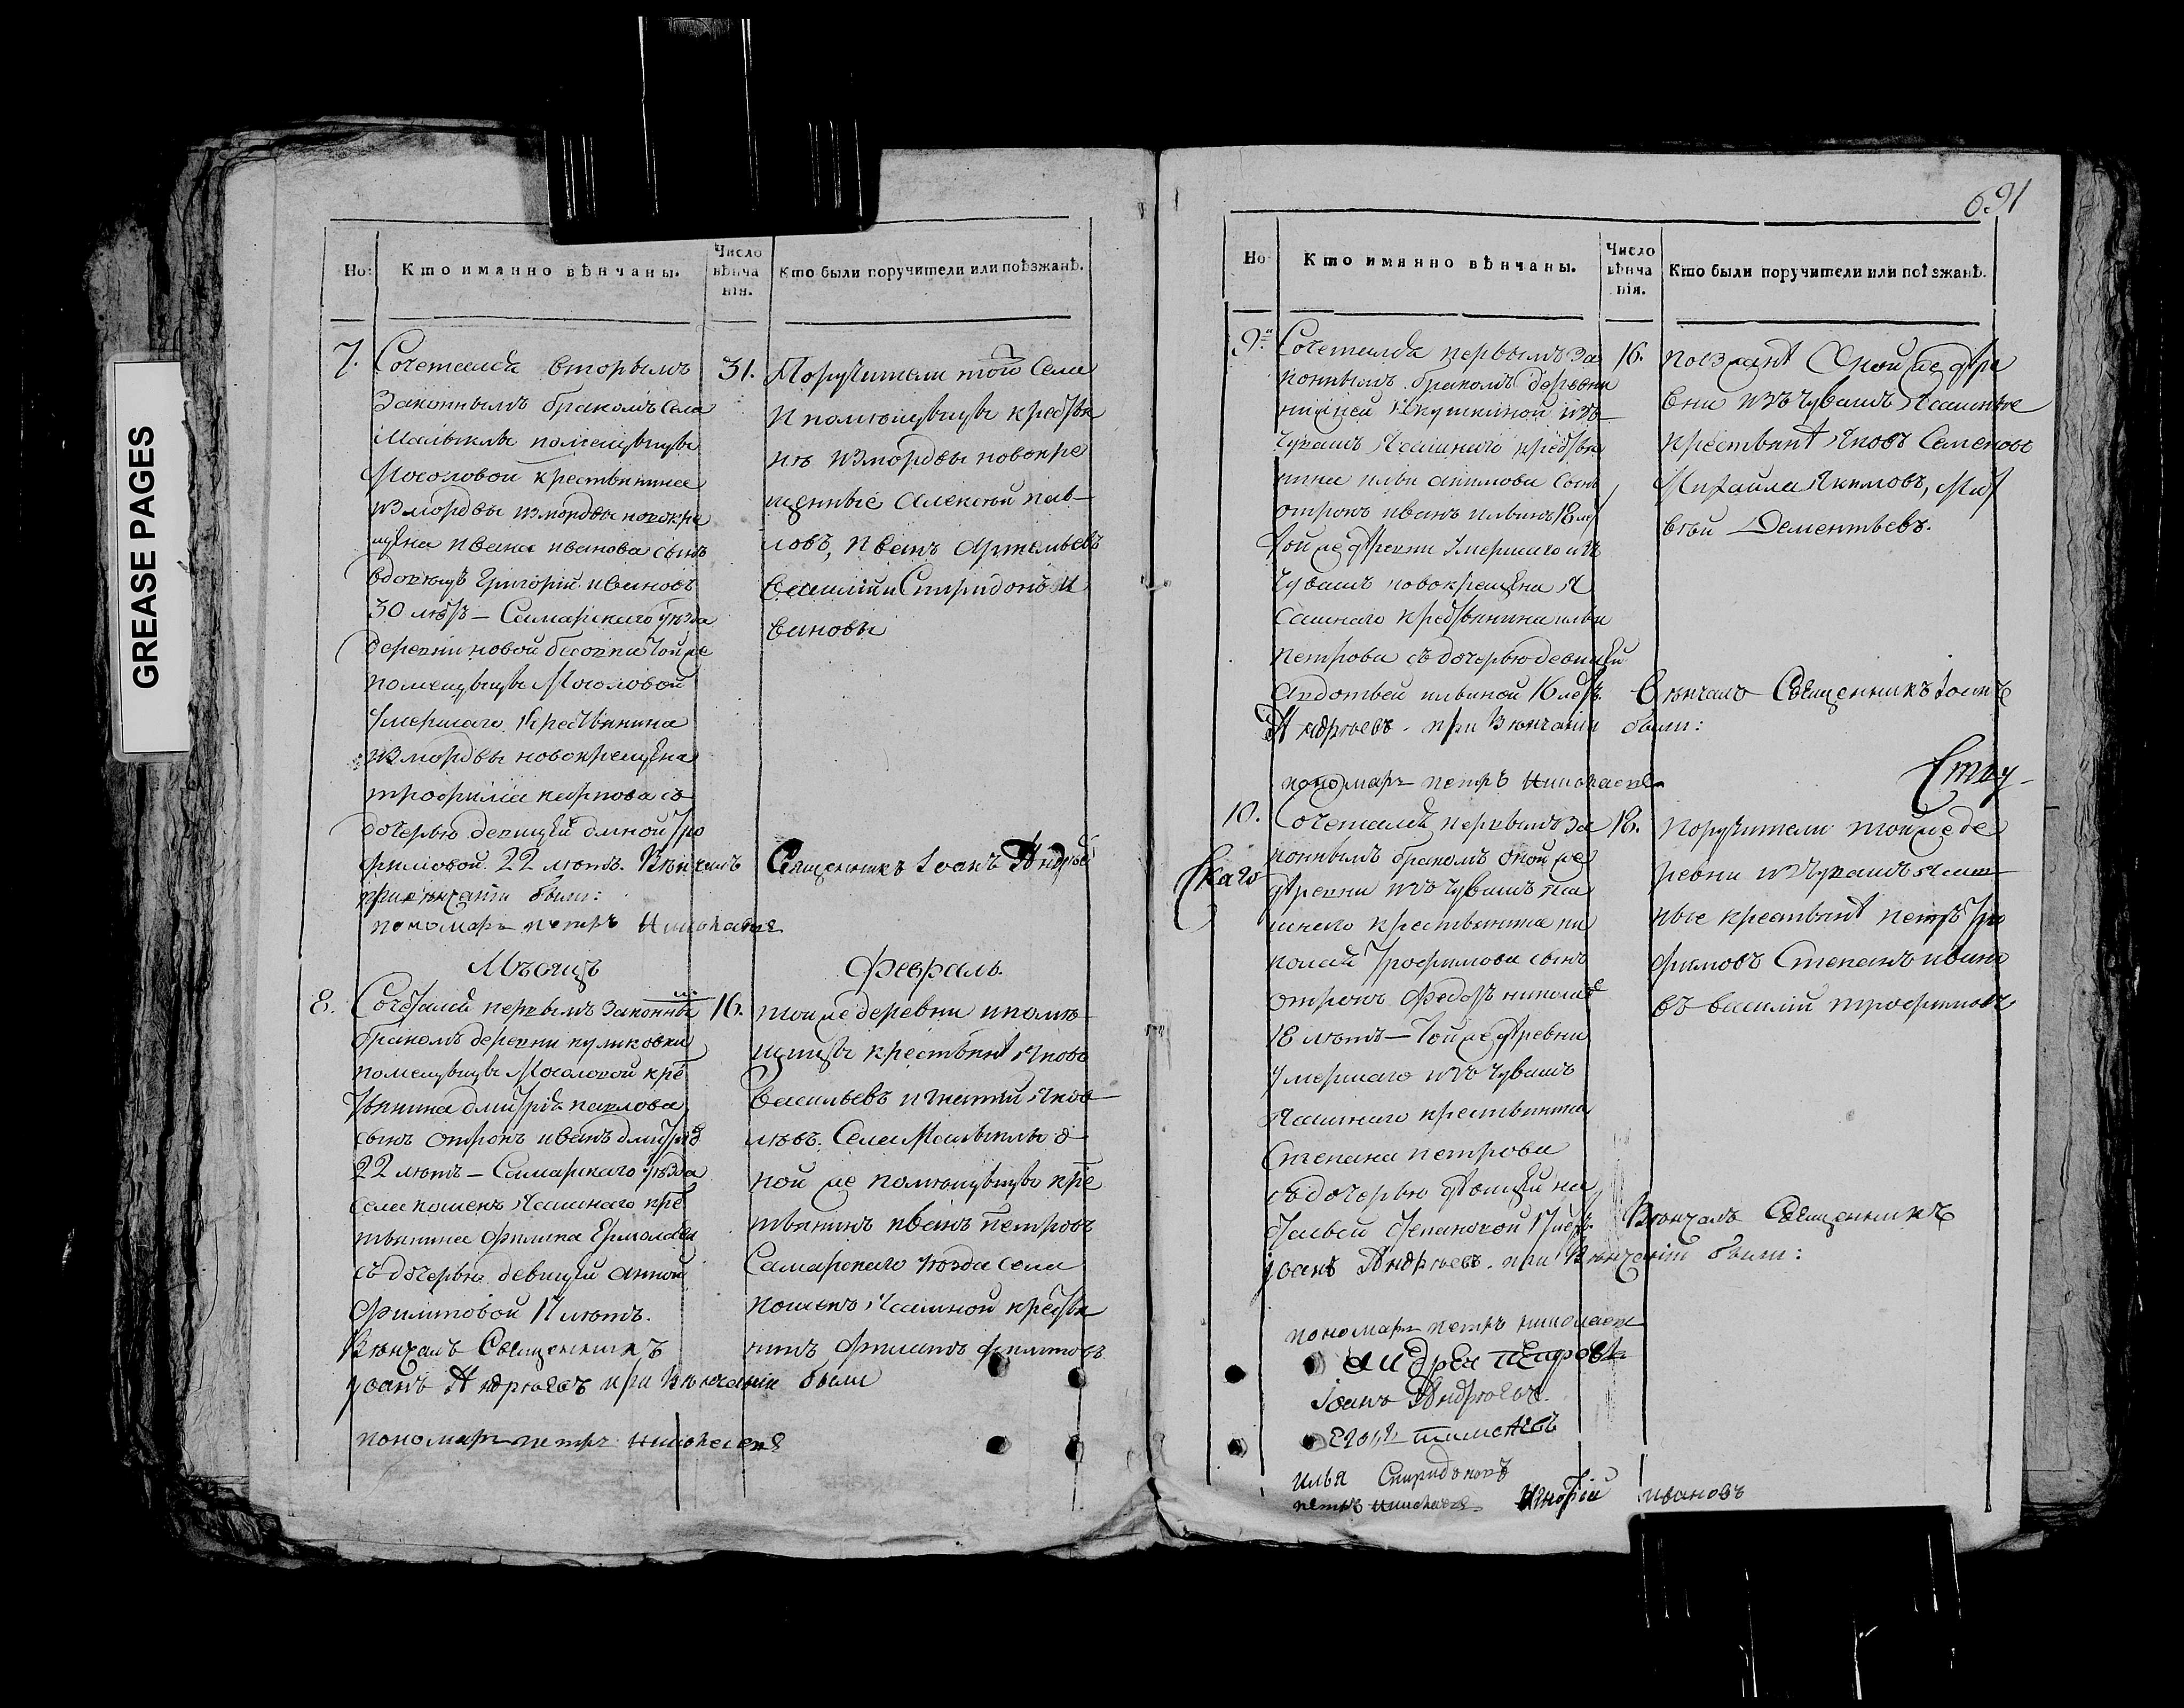 GREASE PAGES
Но:
Кто иманно вѣнчаны.
Число вѣнча нія.
Кто были поручители или поѣзжанѣ.
7.
Сочетался вторымъ
законнымъ бракомъ села
помещицы
крестьянина
измордвы измордвы новокре
щена ивана иванова сынъ
вдовецъ григорій ивановъ
30 летъ — Самарскаго уезда
деревни новой тойже
помещицы
умершаго крестьянина
измордвы новокрещена
трофима карпова съ
дочерью девицей тро
фимовой 22 лѣтъ. Вѣнчалъ
при венчаніи были:
пономарь петръ Николаевъ
31.
Поручители той села
и помѣщицы крестья
нѣ измордвы новокре
щенные алексѣй пав
ловъ, иванъ
василій Спиридонъ и
вановы
Священникъ Іоанъ Андрѣе
Мѣсяцъ
Февраль.
8.
Сочетался первымъ законны
бракомъ деревни куликовки
помещицы кре
тьянина дмитрія павлова
сынъ отрокъ иванъ дмитріе
22 лѣтъ — Самарскаго уѣзда
села кошекъ Ясашнаго кре
тьянина филипа Ермолаева
съ дочерью девицей анной
филиповой 17 лѣтъ.
Вѣнчалъ Священникъ
Іоанъ Андрѣевъ при Вѣнчаніи были
пономарь петръ Николаевъ
16.
тойже деревни и помѣ
щицы крестьянѣ яковъ
васильевъ игнатій яков
лѣвъ. Села о
ной же помѣщицы кре
тьянинъ иванъ петровъ
Самарскаго уѣзда села
кошекъ Ясашной крестья
нинъ филипъ филиповъ
691
Но
Кто имянно вѣнчаны.
Число вѣнча нія.
Кто были поручители или поѣзжанѣ.
9.
Сочетался первымъ за
коннымъ бракомъ деревни
нижней Якушкиной изъ
чувашъ Ясашнаго крестья
нина ильи акимова сынъ
отрокъ иванъ ильинъ 18 ле
той же деревни Умершаго изъ
чувашъ новокрещена я
сашнаго крестьянина ильи
петрова съ дочерью девицей
авдотьей ильиной 16 летъ. Вѣнчалъ Священникъ Іоанъ
Андрѣевъ. при Вѣнчаніи были:
пономарь петръ Николаевъ
16.
поезжанѣ Оной же дере
вни изъ чувашъ Ясашные
крестьянѣ яковъ Семеновъ
Михайла Якимовъ, Мат
вей Дементьевъ.
Ста у
10.
Скаго
Сочетался первымъ за
коннымъ бракомъ оной же
деревни изъ чувашъ яса
шнаго крестьянина ни
колая трофимова сынъ
отрокъ федотъ николае
18 лѣтъ — Той же деревни
умершаго изъ чувашъ
ясашнаго крестьянина
Степана петрова
съ дочерью девицей на
стасьей степановой 17 летъ. Вѣнчалъ Священникъ
Іоанъ Андрѣевъ. при Вѣнчаніи были:
пономарь петръ николаевъ
18.
поручители тойже де
ревни изъ чувашъ ясаш
ные крестьянѣ петръ тро
фимовъ Степанъ ивано
въ василій трофимовъ
андреи петровъ
Іоанъ Андрѣевъ.
илья Спиридоновъ
петръ Николаевъ
ивановъ